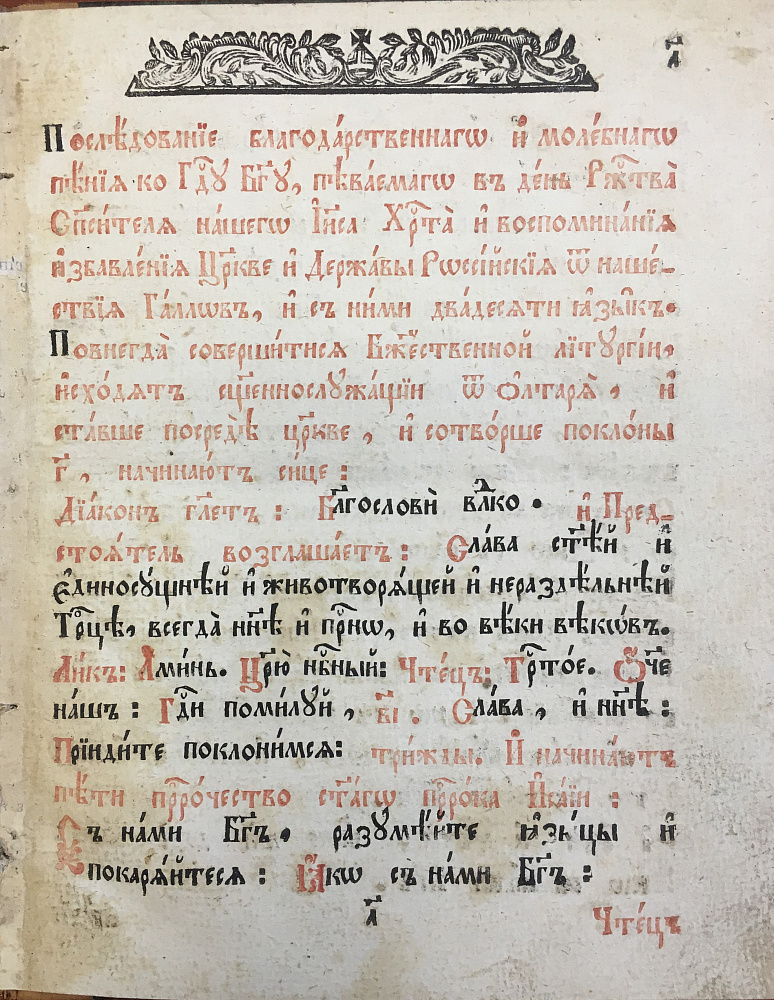 а҃
Послѣ́дованїе благода́рственнагѡ и҆ моле́бнагѡ
пѣ́нїѧ ко Гд҇ꙋ Бг҃ꙋ, пѣва́емагѡ въ де́нь Рж҇тва̀
Сп҃си́телѧ на́шегѡ І҆и҃са Хрⷭ҇та̀ и҆ воспомина́нїѧ
и҆збавле́нїѧ Цр҃кве и҆ Держа́вы Рѡссі́йскїѧ ѿ наше-
ствїѧ Га́ллѡвъ, и҆ съ ни́ми два́десѧти ꙗ҆зы̑къ.
Повнегда̀ соверши́тисѧ Бж҇е́ственной лїтꙋргі́и,
и҆схо́дѧтъ сщ҃еннослꙋжа́щїи ѿ ѻ҆лтарѧ̀, и҆
ста́вше посредѣ̀ цр҃кве, и҆ сотво́рше покло́ны
г҃, начина́ютъ си́це:
Дїа́конъ гл҃етъ: Бл҃гословѝ влⷣко. и҆ Пред-
стоѧ́тель возглаша́етъ: Сла́ва ст҃ѣ́й и҆
є҆диносꙋ́щнѣй и҆ животворѧ́щей и҆ нераздѣ́льнѣй
Трⷪ҇цѣ, всегда̀ нн҃ѣ и҆ прⷭ҇нѡ, и҆ во вѣ́ки вѣкѡ́въ.
Ли́къ: А҆ми́нь. Цр҃ю̀ нбⷭ҇ный: Чте́цъ: Трⷭ҇то́е. Ѻ҆́ч҃е
на́шъ: Гдⷭ҇и поми́лꙋй, в҃і. Сла́ва, и҆ нн҃ѣ:
Прїиди́те поклони́мсѧ: три́жды. И҆ начина́ютъ
пѣ́ти прⷪ҇ро́чество ст҃а́гѡ прⷪ҇ро́ка И҆са́їи:
Съ на́ми Бг҃ъ. разꙋмѣ́йте ꙗ҆зы́цы и҆
покарѧ́йтесѧ: Ꙗ҆́кѡ съ на́ми Бг҃ъ:
а҃
Чте́цъ